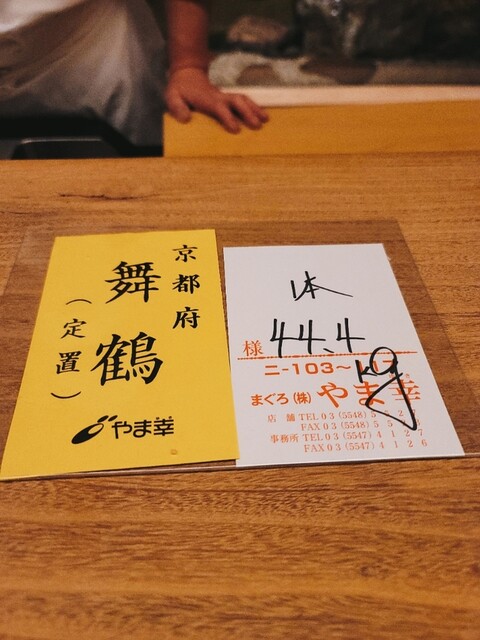 京都府
舞鶴
(定置)
やま幸
1本
44.4
kg
様
ニ-103~
まぐろ(株)やま幸
店舗 TEL 03(5548)
FAX 03(5548)
事務所 TEL 03(5547)4127
FAX 03(5547)4126